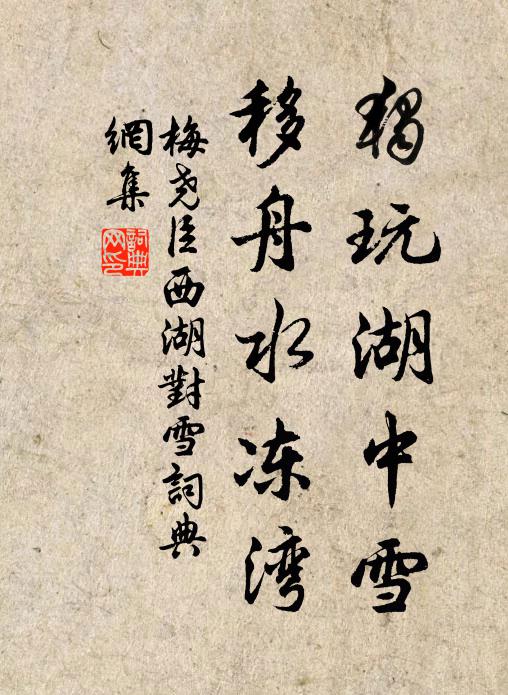 獨玩湖中雪
移舟水冻湾
梅尧臣西湖對雪詞典
網集
詞典
网印